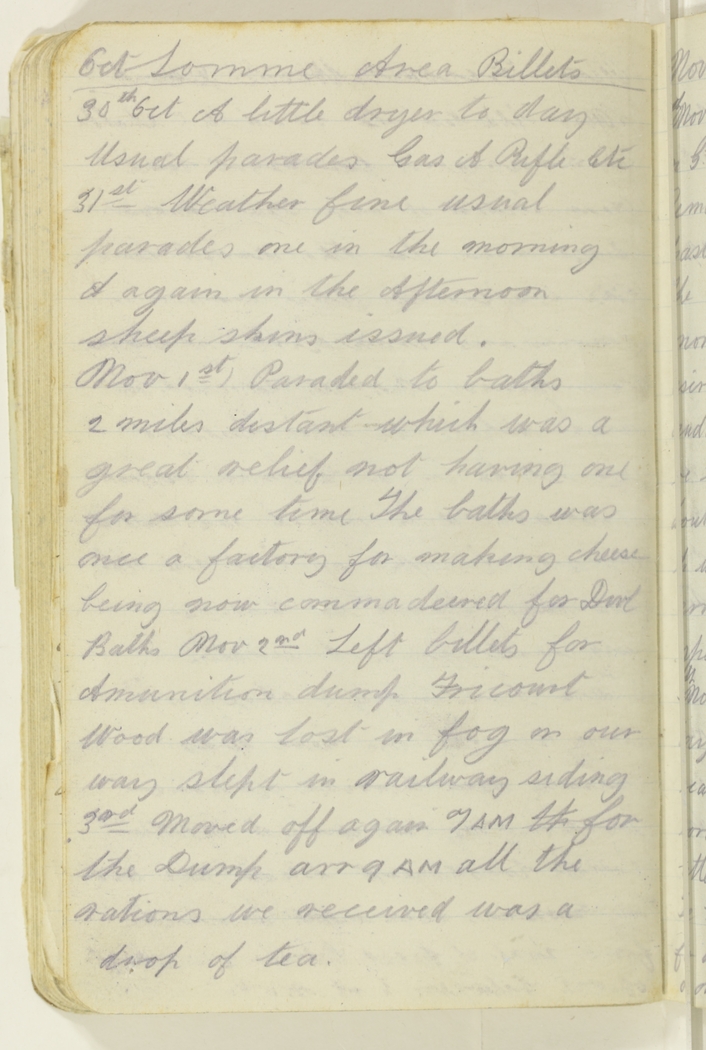 Oct Somme Area Billets
30th Oct A little dryer to day
Usual parades Gas & Rifle Etc
31st Weather fine usual
parades one in the morning
& again in the Afternoon
sheep skins issued.
Nov 1st) Paraded to baths
2 miles distant which was a
great relief not having one
for some time The baths was
once a factory for making cheese
being now commadeered for Divl
Baths Nov 2nd Left billets for
Amunition dump Fricourt
Wood was lost in fog on our
way slept in railway siding
3rd Moved off again 7 AM th for
the Dump arr 9 AM all the
rations we received was a
drop of tea.